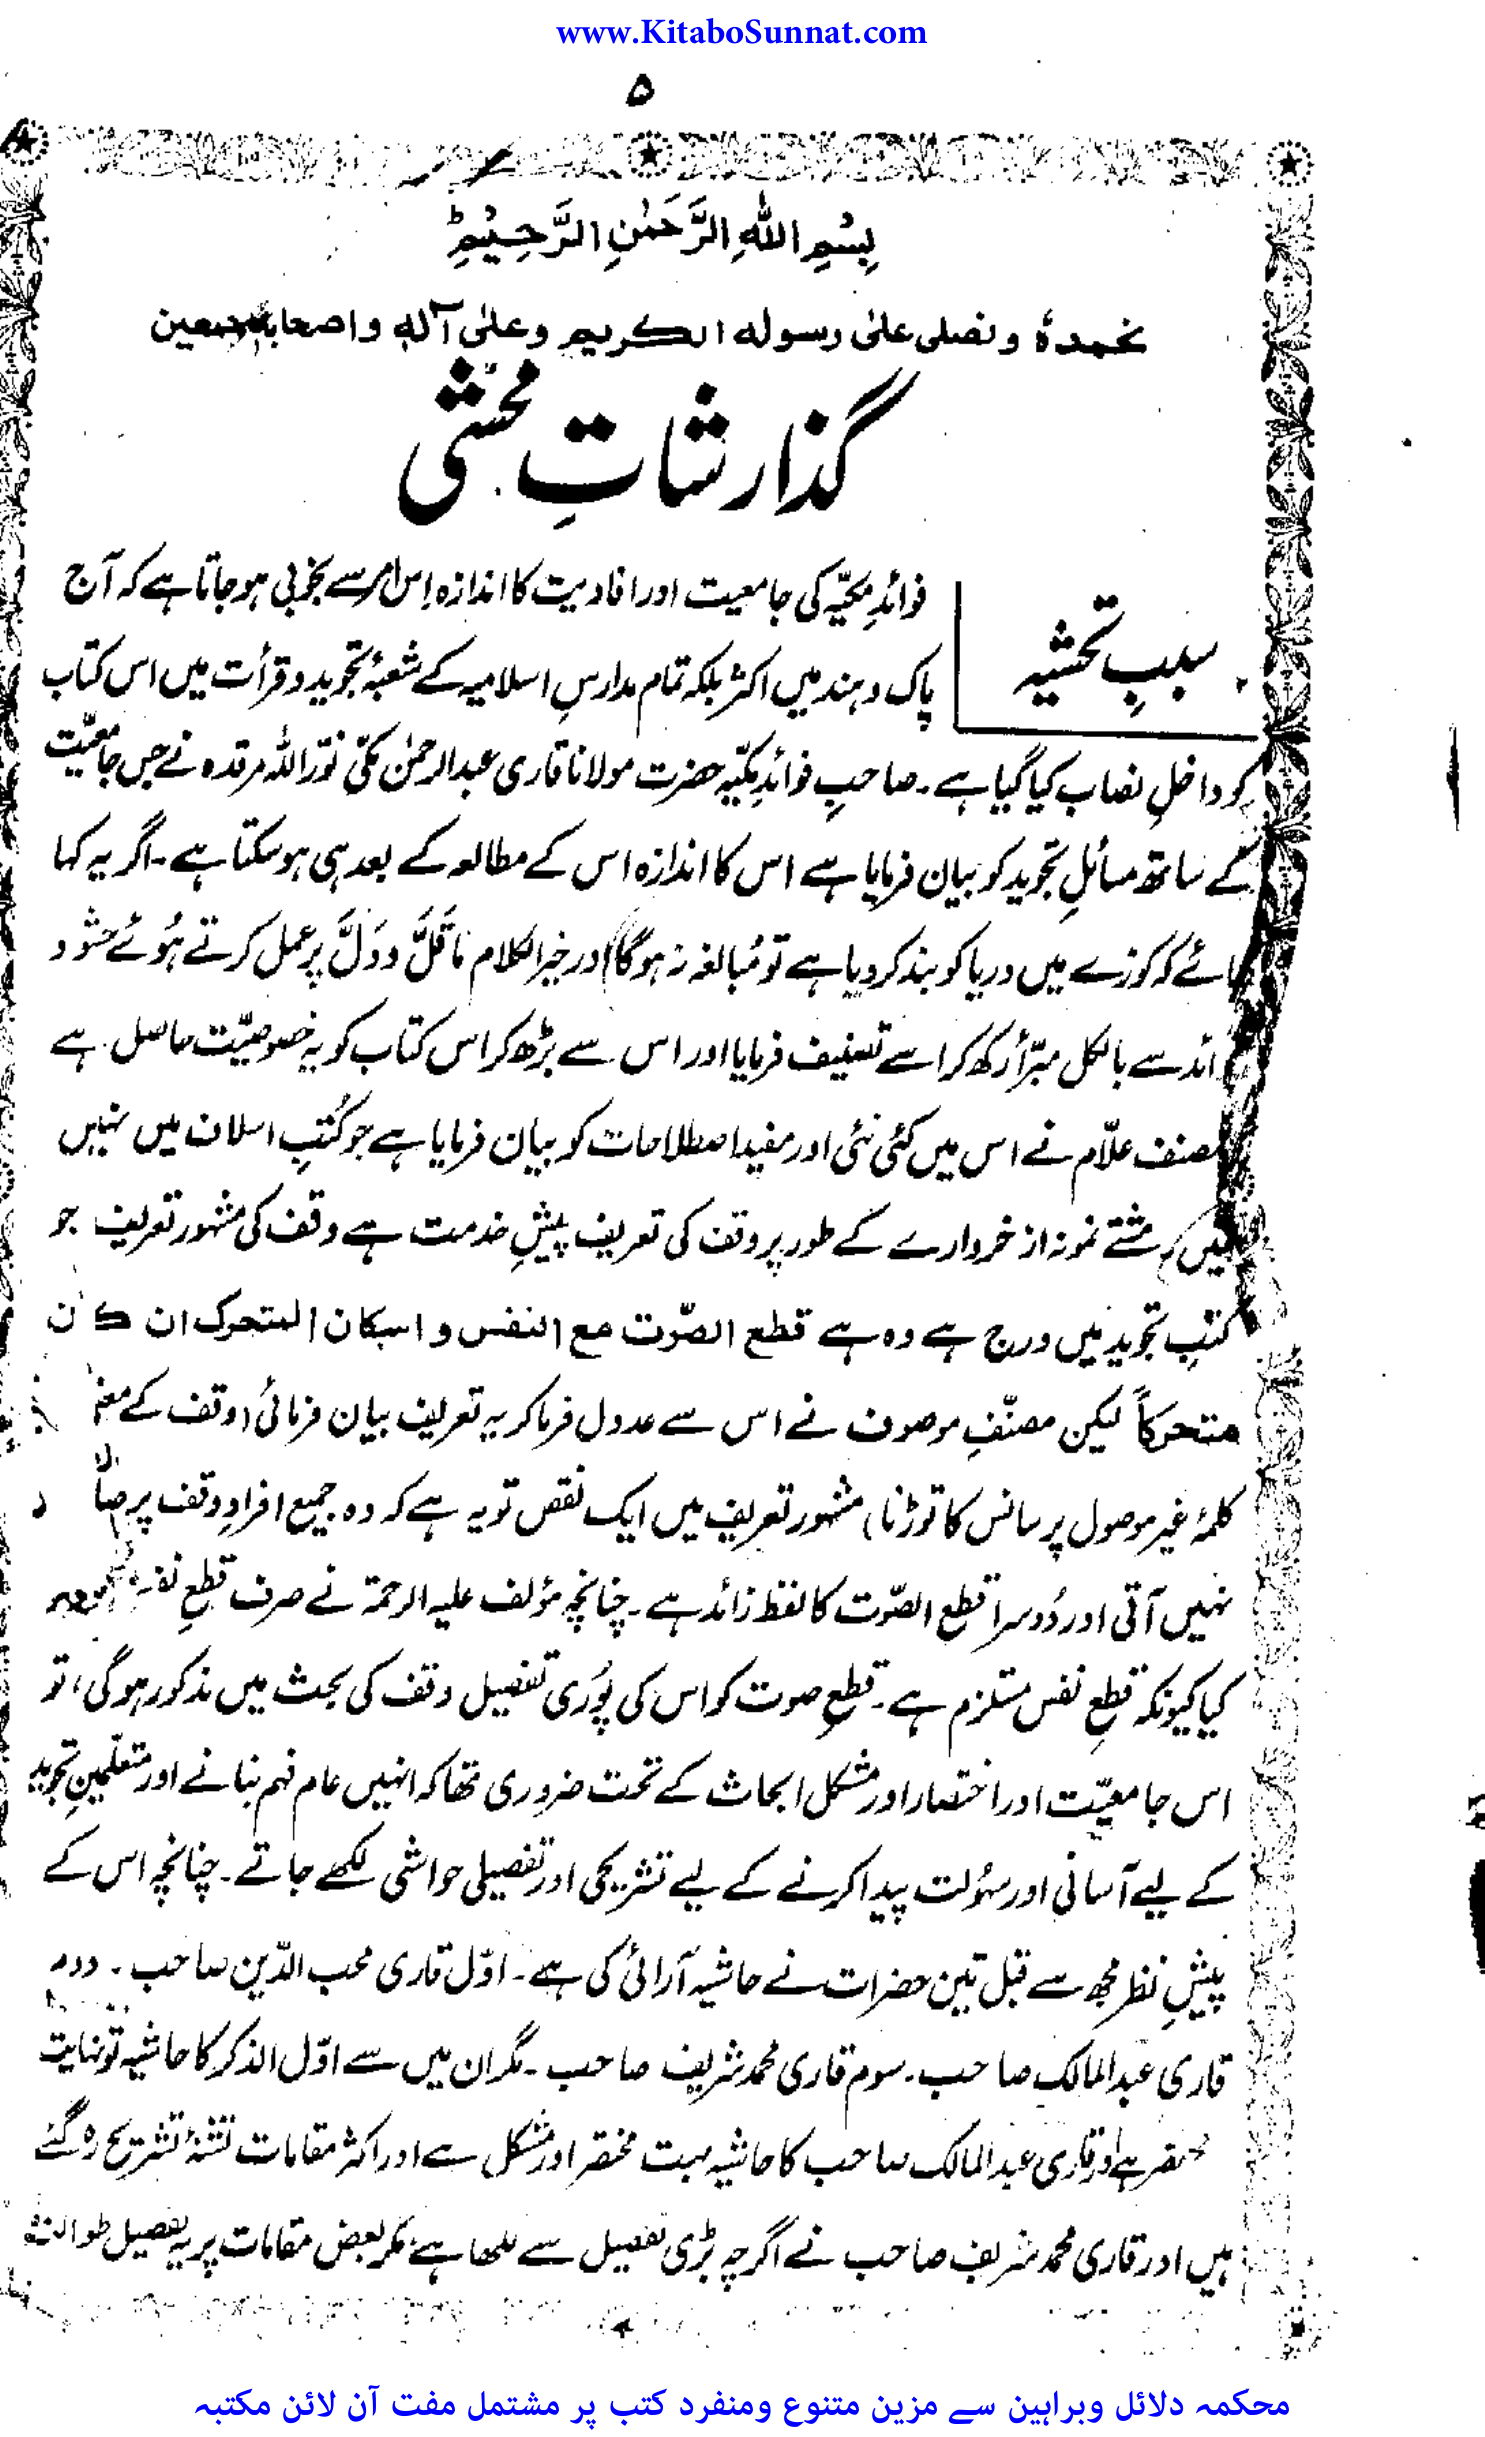 www.KitaboSunnat.com
۵
بِسْمِ اللّٰهِ الرَّحْمٰنِ الرَّحِيْمِ ط
نحمدہٗ ونصلی علیٰ رسولہ الکریم وعلیٰ آلہٖ واصحابہ اجمعین
گذارشاتِ محشی
سببِ تحشیہ
فوائدِ مکیّہ کی جامعیت اور افادیت کا اندازہ اِس امر سے بخوبی ہو جاتا ہے کہ آج
پاک وہند میں اکثر بلکہ تمام مدارسِ اسلامیہ کے شعبۂ تجوید و قرأت میں اس کتاب
کو داخلِ نصاب کیا گیا ہے۔ صاحبِ فوائدِ مکیّہ حضرت مولانا قاری عبدالرحمٰن مکی نوّر اللہ مرقدہ نے جس جامعیّت
کے ساتھ مسائلِ تجوید کو بیان فرمایا ہے اس کا اندازہ اس کے مطالعہ کے بعد ہی ہو سکتا ہے۔ اگر یہ کہا
جائے کہ کوزے میں دریا کو بند کر دیا ہے تو مُبالغہ نہ ہوگا) اور خیر الکلام مَا قَلَّ وَدَلَّ پر عمل کرتے ہُوئے حشو و
زوائد سے بالکل مبرّأ رکھ کر اسے تصنیف فرمایا اور اس سے بڑھ کر اس کتاب کو یہ خصوصیّت حاصل ہے
مصنف علّام نے اس میں کئی نئی اور مفید اصطلاحات کو بیان فرمایا ہے جو کُتبِ اسلاف میں نہیں
ہیں مشتے نمونہ از خروارے کے طور پر وقف کی تعریف پیشِ خدمت ہے وقف کی مشہور تعریف جو
کتبِ تجوید میں درج ہے وہ ہے قطع الصّوت مع النفس و اسکان المتحرک ان کان
متحرکاً لیکن مصنّفِ موصوف نے اس سے عدول فرما کر یہ تعریف بیان فرمائی (وقف کے معنیٰ
کلمۂ غیر موصول پر سانس کا توڑنا) مشہور تعریف میں ایک نقص تو یہ ہے کہ وہ جمیع افرادِ وقف پر صادق
نہیں آتی اور دُوسرا قطع الصّوت کا لفظ زائد ہے۔ چنانچہ مؤلف علیہ الرحمۃ نے صرف قطعِ نفس
کیا کیونکہ قطعِ نفس مستلزم ہے۔ قطعِ صوت کو اس کی پُوری تفصیل وقف کی بحث میں مذکور ہوگی، تو
اس جامعیّت اور اختصار اور مشکل ابحاث کے تحت ضروری تھا کہ انہیں عام فہم بنانے اور متعلّمینِ تجوید
کے لیے آسانی اور سہُولت پیدا کرنے کے لیے تشریحی اور تفصیلی حواشی لکھے جاتے۔ چنانچہ اس کے
پیشِ نظر مجھ سے قبل تین حضرات نے حاشیہ آرائی کی ہے۔ اوّل قاری محب الدّین صاحب۔ دوم
قاری عبدالمالک صاحب۔ سوم قاری محمد شریف صاحب۔ مگر ان میں سے اوّل الذکر کا حاشیہ تو نہایت
مختصر ہے اور قاری عبدالمالک صاحب کا حاشیہ بہت مختصر اور مشکل ہے اور اکثر مقامات تشنۂ تشریح رہ گئے
ہیں اور قاری محمد شریف صاحب نے اگرچہ بڑی تفصیل سے لکھا ہے مگر بعض مقامات پر یہ تفصیل
محکمہ دلائل وبراہین سے مزین متنوع ومنفرد کتب پر مشتمل مفت آن لائن مکتبہ